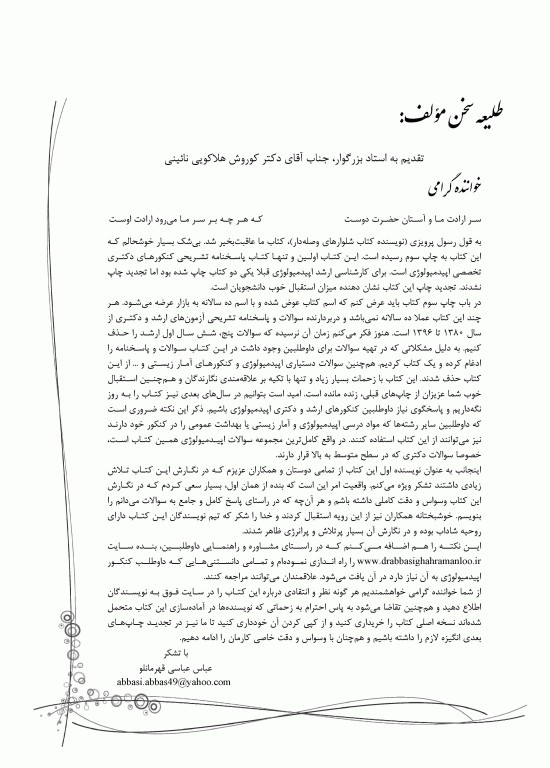 طلیعه سخن مؤلف:
تقدیم به استاد بزرگوار، جناب آقای دکتر کوروش هلاکویی نائینی
خواننده گرامی
سر ارادت ما و آستان حضرت دوست که هر چه بر سر ما می‌رود ارادت اوست
به قول رسول پرویزی (نویسنده کتاب شلوارهای وصله‌دار)، کتاب ما عاقبت‌بخیر شد. بی‌شک بسیار خوشحالم که
این کتاب به چاپ سوم رسیده است. این کتاب اولین و تنها کتاب پاسخنامه تشریحی کنکورهای دکتری
تخصصی اپیدمیولوژی است. برای کارشناسی ارشد اپیدمیولوژی قبلا یکی دو کتاب چاپ شده بود اما تجدید چاپ
نشدند. تجدید چاپ این کتاب نشان دهنده میزان استقبال خوب دانشجویان است.
در باب چاپ سوم کتاب باید عرض کنم که اسم کتاب عوض شده و با اسم ده سالانه به بازار عرضه می‌شود. هر
چند این کتاب عملا ده سالانه نمی‌باشد و دربردارنده سوالات و پاسخنامه تشریحی آزمون‌های ارشد و دکتری از
سال ۱۳۸۰ تا ۱۳۹۶ است. هنوز فکر می‌کنم زمان آن نرسیده که سوالات پنج، شش سال اول ارشد را حذف
کنیم. به دلیل مشکلاتی که در تهیه سوالات برای داوطلبین وجود داشت در این کتاب سوالات و پاسخنامه را
ادغام کرده و یک کتاب کردیم. هم‌چنین سوالات دستیاری اپیدمیولوژی و کنکورهای آمار زیستی و ... از این
کتاب حذف شدند. این کتاب با زحمات بسیار زیاد و تنها با تکیه بر علاقه‌مندی نگارندگان و هم‌چنین استقبال
خوب شما عزیزان از چاپ‌های قبلی، زنده مانده است. امید است بتوانیم در سال‌های بعدی نیز کتاب را به روز
نگه‌داریم و پاسخگوی نیاز داوطلبین کنکورهای ارشد و دکتری اپیدمیولوژی باشیم. ذکر این نکته ضروری است
که داوطلبین سایر رشته‌ها که مواد درسی اپیدمیولوژی و آمار زیستی یا بهداشت عمومی را در کنکور خود دارند
نیز می‌توانند از این کتاب استفاده کنند. در واقع کامل‌ترین مجموعه سوالات اپیدمیولوژی همین کتاب است،
خصوصا سوالات دکتری که در سطح متوسط به بالا قرار دارند.
اینجانب به عنوان نویسنده اول این کتاب از تمامی دوستان و همکاران عزیزم که در نگارش این کتاب تلاش
زیادی داشتند تشکر ویژه می‌کنم. واقعیت امر این است که بنده از همان اول، بسیار سعی کردم که در نگارش
این کتاب وسواس و دقت کاملی داشته باشم و هر آن‌چه که در راستای پاسخ کامل و جامع به سوالات می‌دانم را
بنویسم. خوشبختانه همکاران نیز از این رویه استقبال کردند و خدا را شکر که تیم نویسندگان این کتاب دارای
روحیه شاداب بوده و در نگارش آن بسیار پرتلاش و پرانرژی ظاهر شدند.
این نکته را هم اضافه می‌کنم که در راستای مشاوره و راهنمایی داوطلبین، بنده سایت
www.drabbasighahramanloo.ir را راه اندازی نموده‌ام و تمامی دانستنی‌هایی که داوطلب کنکور
اپیدمیولوژی به آن نیاز دارد در آن یافت می‌شود. علاقمندان می‌توانند مراجعه کنند.
از شما خواننده گرامی خواهشمندیم هر گونه نظر و انتقادی درباره این کتاب را در سایت فوق به نویسندگان
اطلاع دهید و هم‌چنین تقاضا می‌شود به پاس احترام به زحماتی که نویسنده‌ها در آماده‌سازی این کتاب متحمل
شده‌اند نسخه اصلی کتاب را خریداری کنید و از کپی کردن آن خودداری کنید تا ما نیز در تجدید چاپ‌های
بعدی انگیزه لازم را داشته باشیم و هم‌چنان با وسواس و دقت خاصی کارمان را ادامه دهیم.
با تشکر
عباس عباسی قهرمانلو
abbasi.abbas49@yahoo.com